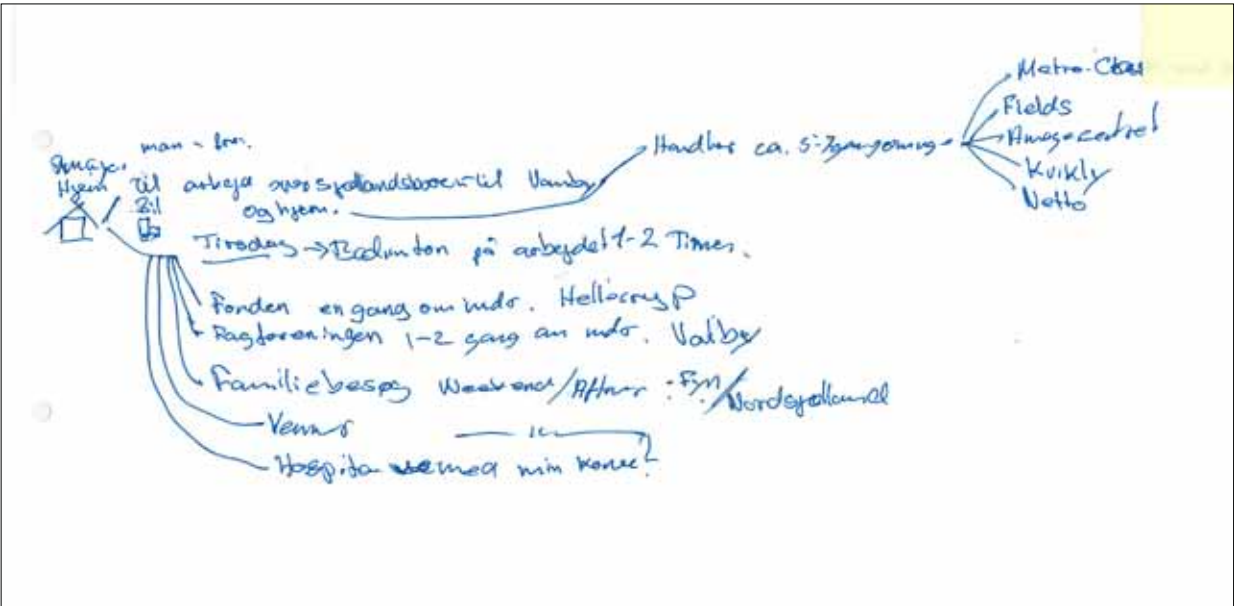 man - fre.
Hjem til arbejde over sjællandsbroen til
og hjem.
Bil
Handler ca. 5-7 gange om ugen
Metro-
Fields
Amagercentret
Kvikly
Netto
Tirsdag → Badminton på arbejdet 1-2 Timer.
Fonden en gang om mdr. Hellerup
Fagforeningen 1-2 gang om mdr. Valby
Familiebesøg Weekend/Aftner : Fyn/Nordsjælland
Venner
med min kone?